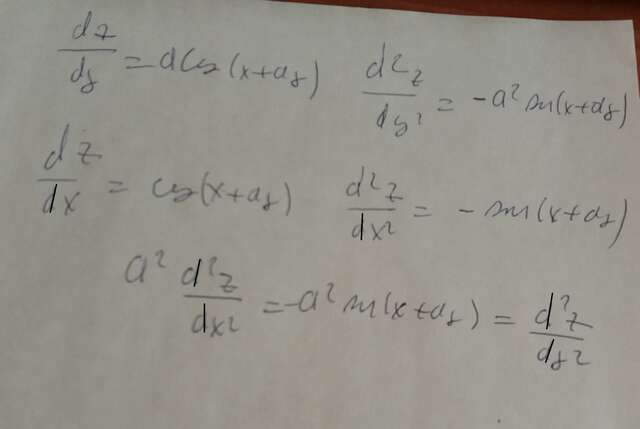 dz/dy = a cos(x+ay) d²z/dy² = -a² sin(x+ay)
dz/dx = cos(x+ay) d²z/dx² = - sin(x+ay)
a² d²z/dx² = -a² sin(x+ay) = d²z/dy²